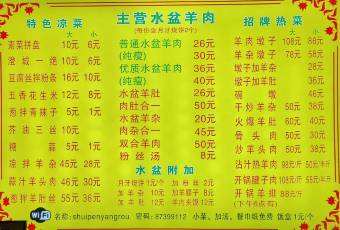 特色凉菜
荤菜拼盘 10元 6元
澄城一绝 10元 6元
豆腐丝拌粉条 16元 10元
五香花生米 12元 8元
葱拌青辣子 5元
芥油三丝 10元
糖蒜 5元 1元
凉拌羊杂 45元 28元
蒜汁羊头肉 46元 30元
葱拌羊肚丝 55元 36元
主营水盆羊肉
(每份含月牙烧饼2个)
普通水盆羊肉 26元
(纯瘦) 30元
优质水盆羊肉 36元
(纯瘦) 40元
水盆羊肚 26元
肉肚合一 50元
水盆羊杂 20元
肉杂合一 45元
双合羊肉 50元
粉丝汤 8元
水盆附加
月牙烧饼 1元/个 加羊肚 12元
加粉丝 2元 加羊杂 10元
加羊肉 12元 羊肉夹馍 12元
招牌热菜
羊肉墩子 108元 88元
羊杂墩子 78元 58元
墩子加羊肉 38元
墩子加羊杂 28元
碗墩 26元
干炒羊杂 58元 38元
火爆羊肚 60元 40元
骨头肉 50元 30元
炒羊头肉 50元 30元
沾汁热羊肉 98元/斤
开锅腱子肉 98元/斤
开锅羊排 88元/斤
(下午6点后)
WiFi 名称: shuipenyangrou 密码: 87399112 小菜、加汤、餐巾纸免费 饭盒1元/个